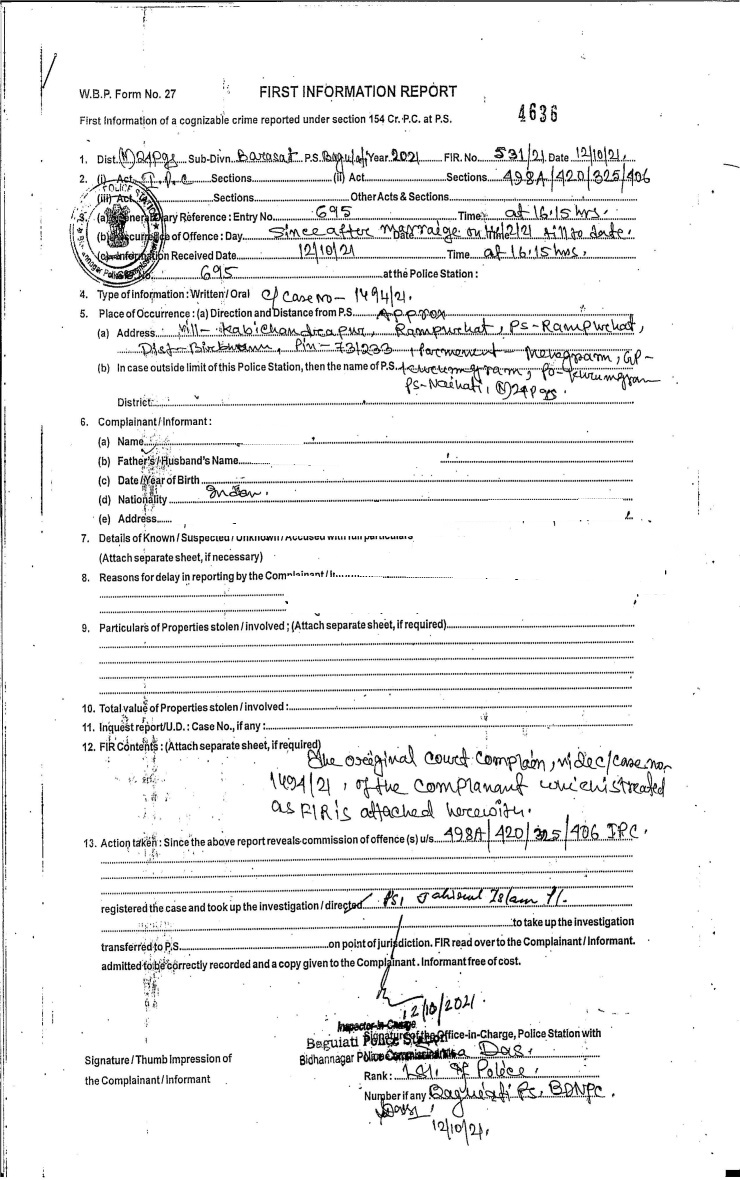 W.B.P. Form No. 27 FIRST INFORMATION REPORT
4636
First Information of a cognizable crime reported under section 154 Cr. P.C. at P.S.
1. Dist. (N) 24Pgs Sub-Divn. Barasat P.S. Baguiati Year 2021 FIR. No 531/21 Date 12/10/21.
2. (i) Act I.P.C Sections (ii) Act Sections 498A/420/325/406
(iii) Act Sections Other Acts & Sections
(a) General Diary Reference : Entry No. 695 Time at 16.15 hrs.
(b) Occurrence of Offence : Day Since after marraige on 2/21 till to date.
(c) Information Received Date 12/10/21 Time at 16:15 hrs.
No. 695 at the Police Station :
4. Type of information : Written / Oral C/Case no - 1494/21.
5. Place of Occurrence : (a) Direction and Distance from P.S. Approx
(a) Address Vill- Kabichandrapur, Rampurhat, PS-Rampurhat,
Dist- Birbhum, Pin - 731233, GP-
(b) In case outside limit of this Police Station, then the name of P.S.
PS-Naihati, (N) 24Pgs.
District:
6. Complainant / Informant :
(a) Name
(b) Father's / Husband's Name
(c) Date / Year of Birth
(d) Nationality Indian.
(e) Address
7. Details of Known / Suspected / Unknown / Accused with full particulars
(Attach separate sheet, if necessary)
8. Reasons for delay in reporting by the Complainant / I
9. Particulars of Properties stolen / involved ; (Attach separate sheet, if required)
10. Total value of Properties stolen / involved :
11. Inquest report / U.D. : Case No., if any :
12. FIR Contents : (Attach separate sheet, if required)
The original court complain, vide c/case no
1494/21, of the complanant which is treated
as FIR is attached herewith.
13. Action taken : Since the above report reveals commission of offence (s) u/s 498A/420/325/406 IPC.
registered the case and took up the investigation / directed PSI Islam
to take up the investigation
transferred to P.S. on point of jurisdiction. FIR read over to the Complainant / Informant.
admitted to be correctly recorded and a copy given to the Complainant. Informant free of cost.
12/10/2021.
Inspector-in-Charge
Signature of the Office-in-Charge, Police Station with
Baguiati Police Station
Bidhannagar Police Commissionerate
Das.
Signature / Thumb Impression of
the Complainant / Informant
Rank : of Police.
Number if any Baguiati PS. BDNPC.
12/10/21.